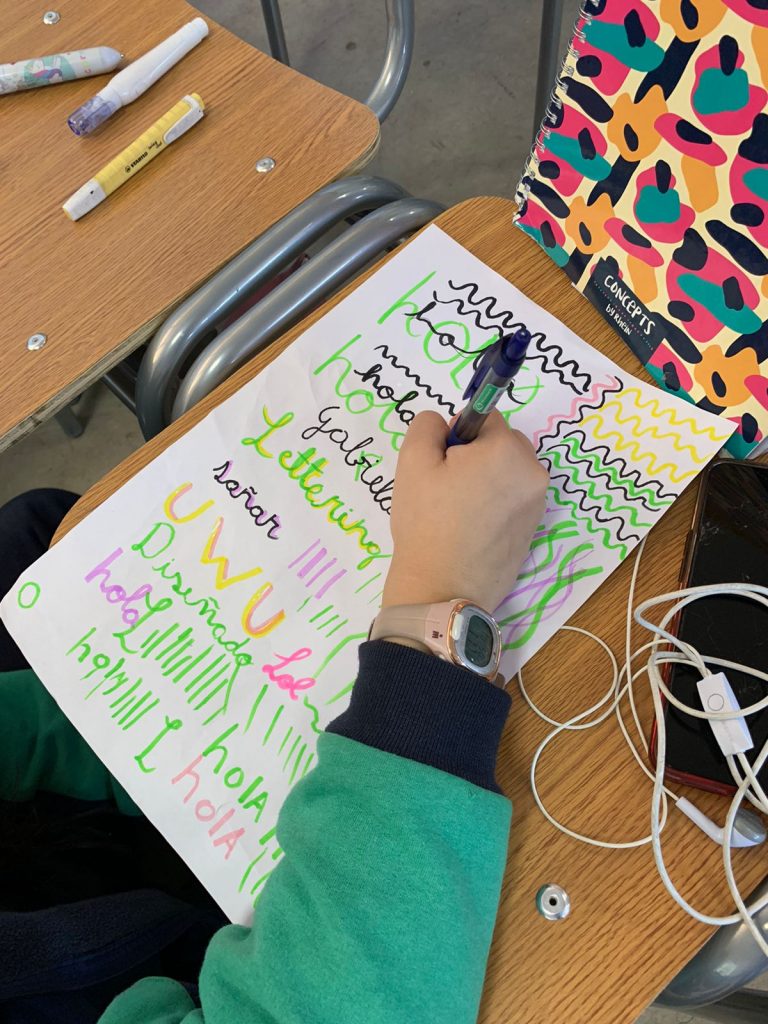 hola
hola
hola
hola
Gabriela
Lettering
soñar
UWU
Diseñado
hola
L
Lol
hola
L
hola
hola
CONCEPTS
by Rhein
STABILO